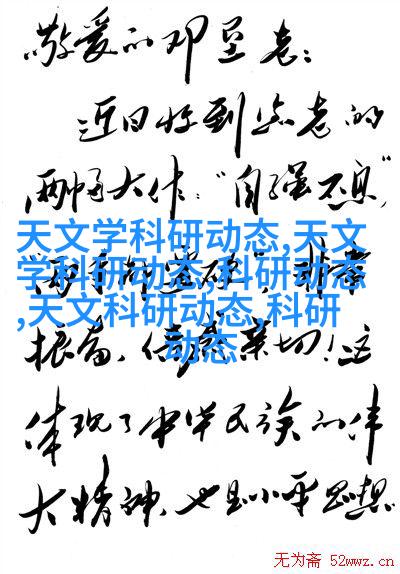 敬爱的邓垦老：
近日收到您老的
两幅大作："自强不息"
天文学科研动态,天文
学科研动态,科研动态
,天文科研动态,科研
动态
振奋、倍感亲切！这
体现了中华民族的伟
大精神,也是小平思想
无为斋 52wwz.cn